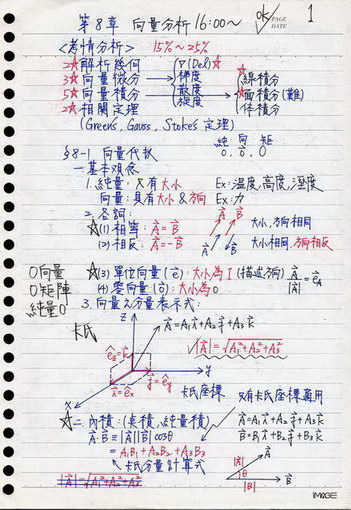 第8章 向量分析 16:00~
OK/ PAGE DATE 1
<考情分析> 15%~25%
2☆解析幾何
3☆向量微分 → ∇(Del) 梯度 散度 旋度
5☆向量積分 → ☆線積分 ☆面積分(難) 體積分
2☆相關定理
(Greens, Gauss, Stokes 定理)
純 向 矩
0, 0, 0
§8-1 向量代數
一.基本觀念
1.純量:只有大小 Ex:溫度,高度,溼度
向量:具有大小&方向 Ex:力
2.名詞:
☆(1)相等:A=B A B 大小,方向相同
(2)相反:A=-B A B 大小相同,方向相反
0向量
0矩陣
純量0
☆(3)單位向量(e):大小為1(描述方向) A/|A| = eA
(4)零向量(0):大小為0
3.向量之分量表示式:
卡氏 z A=A₁i+A₂j+A₃k
ez=k
|A|=√A₁²+A₂²+A₃²
y
j=ey
i=ex
x
卡氏座標 只有卡氏座標適用
☆二.內積:(點積,純量積)
A=A₁i+A₂j+A₃k
B=B₁i+B₂j+B₃k
A·B≡|A||B|cosθ
=A₁B₁+A₂B₂+A₃B₃
卡氏分量計算式
|A| A θ |B| B
|A|=√A₁²+A₂²+A₃²
IMAGE